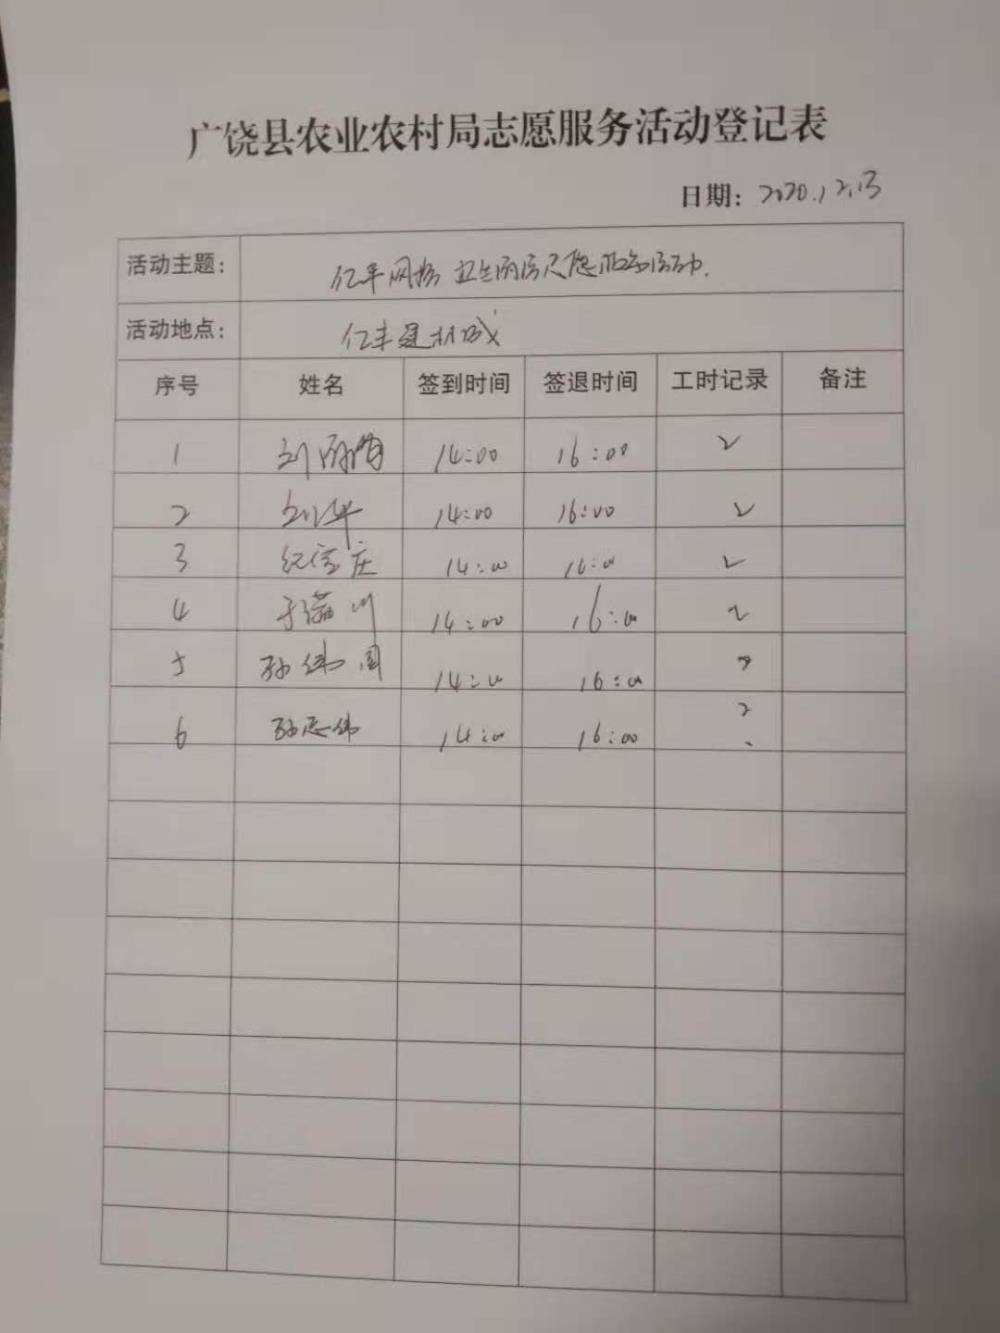 广饶县农业农村局志愿服务活动登记表
日期: 2020.12.13
活动主题: 亿丰网格 卫生
活动地点: 亿丰建材城
序号 姓名 签到时间 签退时间 工时记录 备注
1 刘 14:00 16:00 2
2 刘华 14:00 16:00 2
3 纪 庄 14:00 16:00 2
4 于 川 14:00 16:00 2
5 孙伟国 14:00 16:00 2
6 孙志伟 14:00 16:00 2